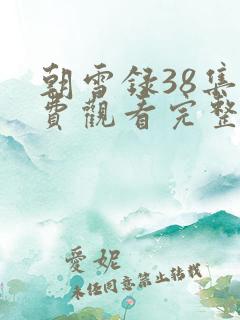 朝雪録38集
費觀看完整
愛妮
未任同意禁止转载